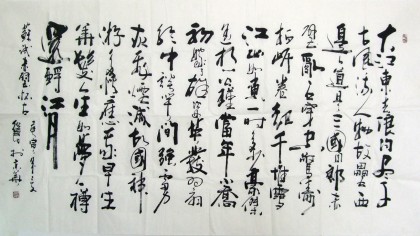 大江東去浪淘盡千
古風流人物故壘西
邊人道是三國周郎赤
壁亂石穿空驚濤
拍岸卷起千堆雪
江山如畫一時多少豪傑
遙想公瑾當年小喬
初嫁了雄姿英發羽扇
綸巾談笑間強虜
灰飛煙滅故國神
遊多情應笑我早生
華髮人生如夢一樽
還酹江月
蘇軾赤壁懷古